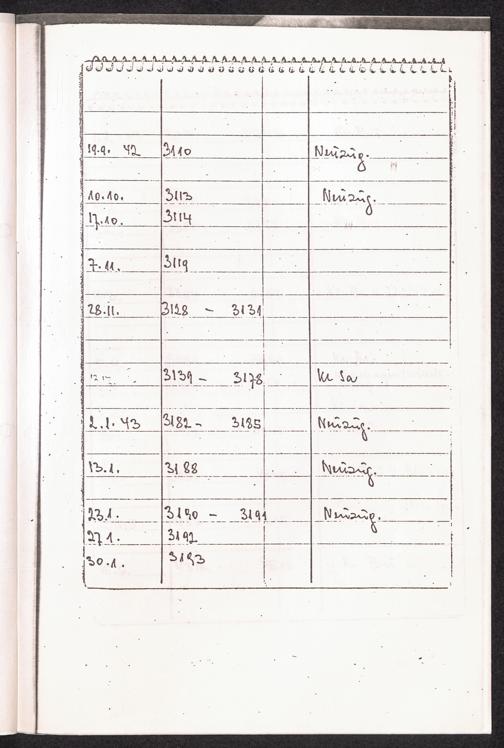 19.9. 42 3110 Neuzug.
10.10. 3113 Neuzug.
17.10. 3114
7.11. 3119
28.11. 3128 - 3131
3139 - 3178
2.1.43 3182 - 3185 Neuzug.
13.1. 3188 Neuzug.
23.1. 3190 - 3191 Neuzug.
27.1. 3192
30.1. 3193